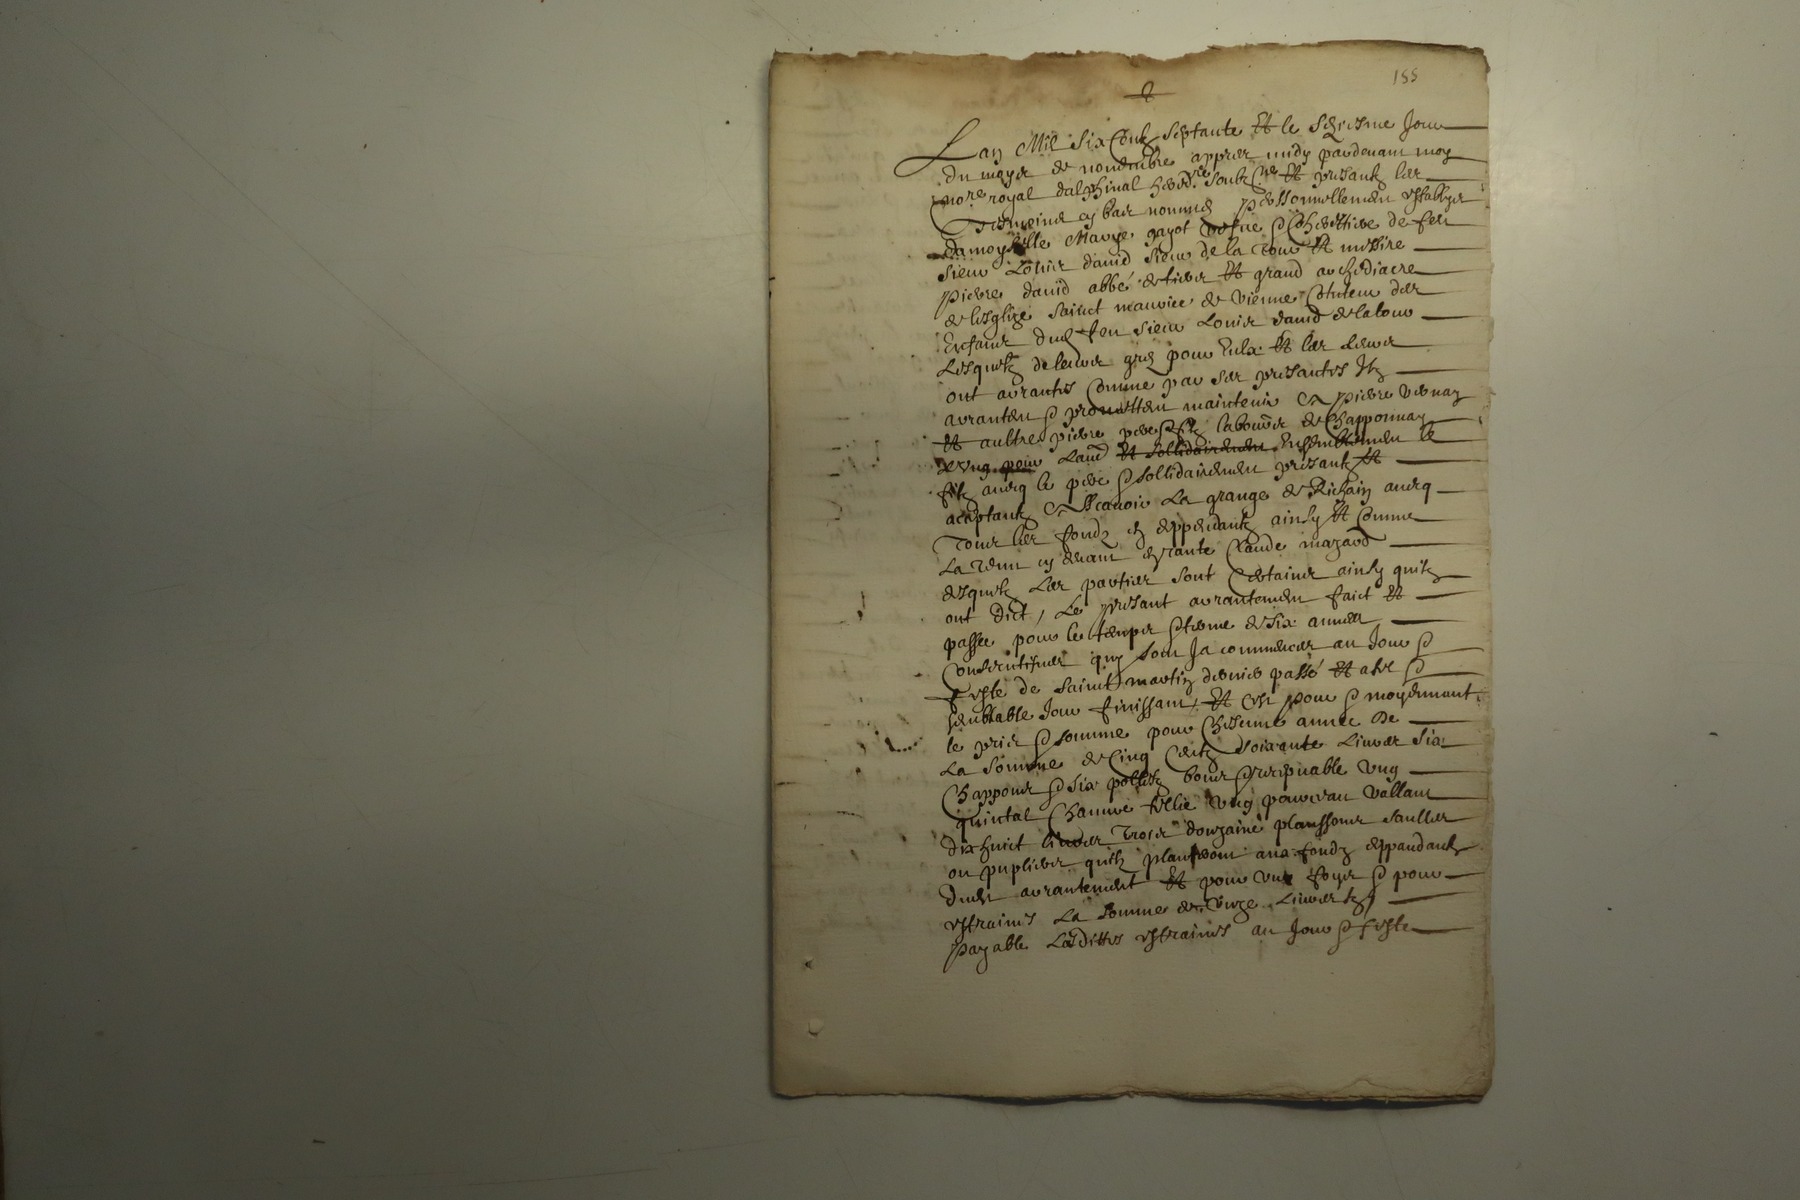 155
Lan Mil six Centz septante Et le seziesme Jour
du moys de novembre appres midy pardevant moy
nore royal dalphinal heredre soubzne Et presantz les
Tesmeins cy bas nommes personnellement establye
damoyselle Marye gayot vefve & heritiere de feu
sieur Louis david sieur de la tour Et messire
pierre david abbé de Et grand archediacre
de lesglize sainct maurice de vienne Cotuteur des
Enfans dud feu sieur Louis david de latour
Lesquelz de leurs gres pour Eulx Et les leurs
ont arrantes Comme par ses presantes Ilz
arrantent & promettent maintenir A pierre vernay
Et aultre pierre pere & filz labours de Chapponnay
Laud Et sollidairement Ensemblement le
filz avecq le pere & sollidairement presantz Et
aceptantz Assavoir La grange de Richain avecq
Tous les fondz en deppendantz ainsy Et Comme
La tenu cy devant Claude mazard
desquelz Les parties sont Certaines ainsy quilz
ont dict, Le presant arrantement faict Et
passe pour le temps & terme de six annees
Consecutifves quy sont Ja commencees au Jour &
feste de sainct martin dernier passé Et a tel &
semblable Jour finissant, Et Cest pour & moyennant
le pris & somme pour Chescune annee De
La somme de Cinq Centz soixante Livres six
Chappons & six polletz bons & receptuable ung
quintal Chanvre fillie ung pourceau vallant
dix huict livres Trois douzaine planssons saulles
ou pupliers quilz planteront aux fondz deppandantz
dudt arrantement Et pour une foys & pour
estraines La somme de unze Livres tz
payable Lesdittes estraines au Jour & feste